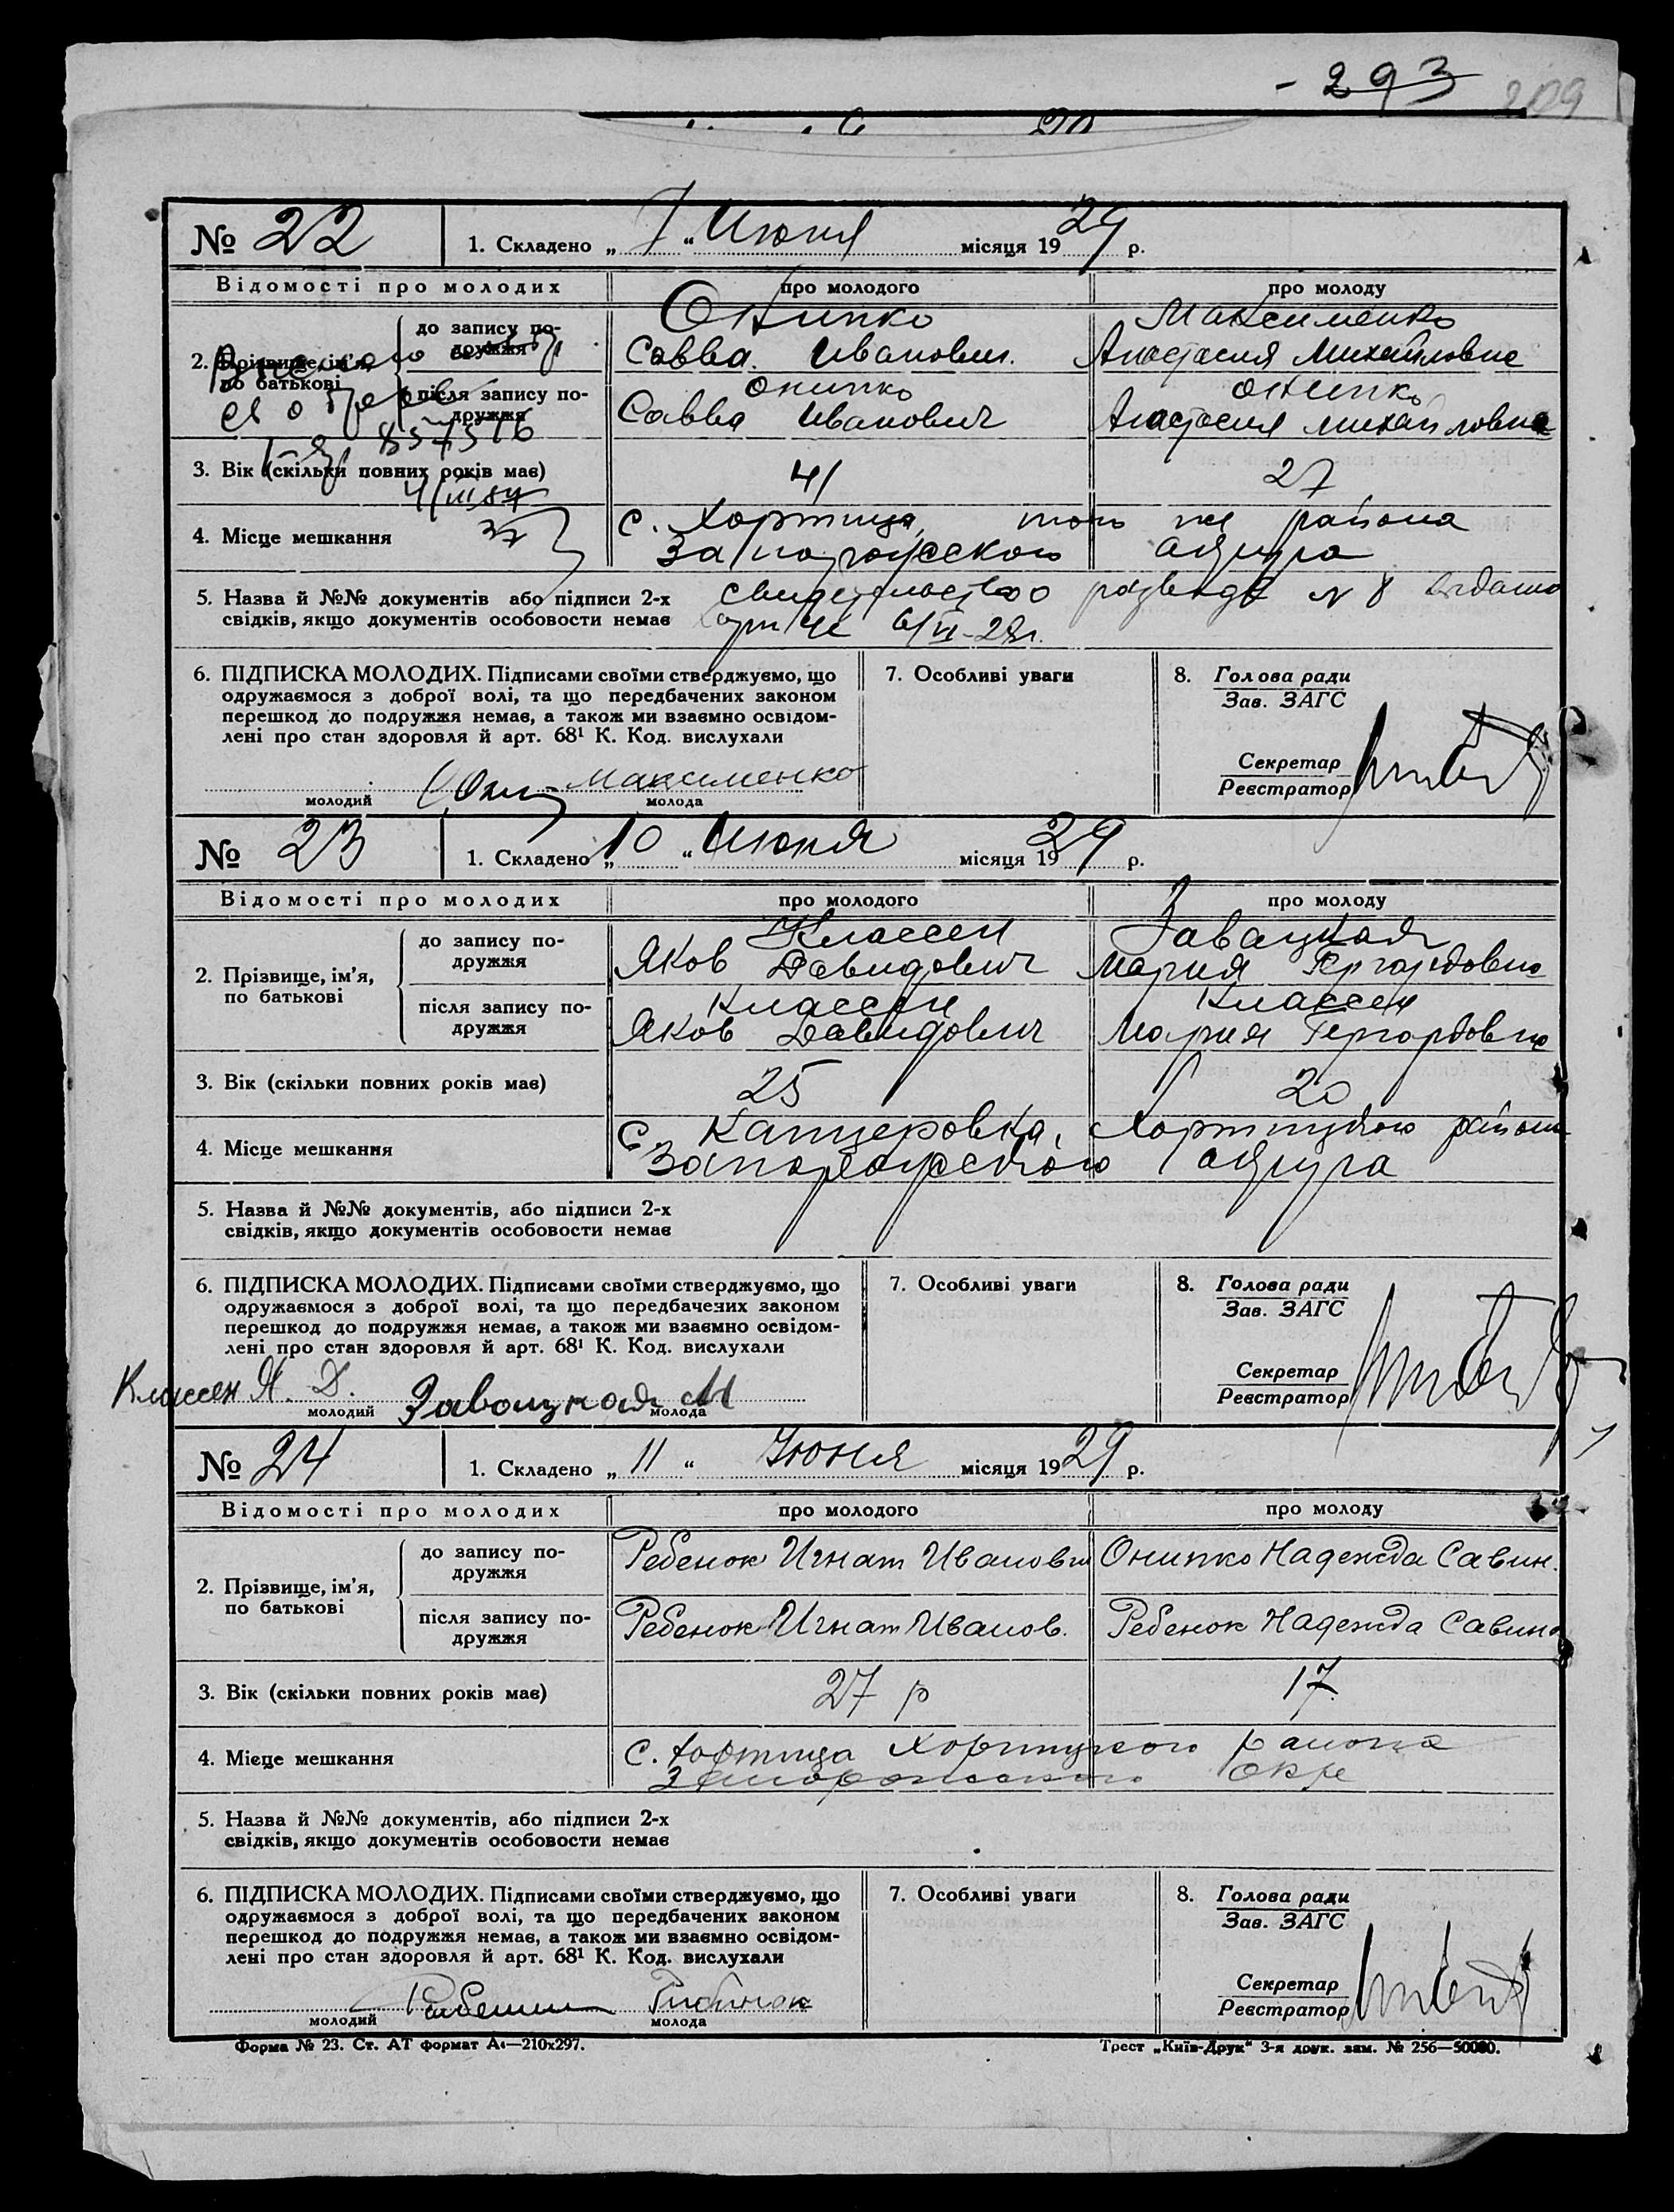 - 293
209
№ 22
1. Складено „ 7 “ Июня місяця 1929 р.
Відомості про молодих
про молодого
про молоду
2. Прізвище, ім'я, по батькові
до запису по-
дружжя
Онипко
Савва Иванович
Максименко
Анастасия Михайловне
після запису по-
дружжя
Онипко
Савва Иванович
Онипко
Анастасия Михайловна
857516
3. Вік (скільки повних років має)
41
27
4/III 84
4. Місце мешкання
с. Хортица, того же района
Запорожского округа
5. Назва й №№ документів або підписи 2-х
свідків, якщо документів особовости немає
свидетельство о разводе № 8 выдано
6/VI-29г.
6. ПІДПИСКА МОЛОДИХ. Підписами своїми стверджуємо, що
одружаємося з доброї волі, та що передбачених законом
перешкод до подружжя немає, а також ми взаємно освідом-
лені про стан здоровля й арт. 68¹ К. Код. вислухали
7. Особливі уваги
8. Голова ради
Зав. ЗАГС
Секретар
Реєстратор
Максименко
молодий
молода
№ 23
1. Складено „ 10 “ Июня місяця 1929 р.
Відомості про молодих
про молодого
про молоду
2. Прізвище, ім'я,
по батькові
до запису по-
дружжя
Классен
Яков Давидович
Завацкая
Мария Гергардовна
після запису по-
дружжя
Классен
Яков Давидович
Классен
Мария Гергардовна
3. Вік (скільки повних років має)
25
20
4. Місце мешкання
с. Канцеровка, Хортицкого района
Запорожского округа
5. Назва й №№ документів, або підписи 2-х
свідків, якщо документів особовости немає
6. ПІДПИСКА МОЛОДИХ. Підписами своїми стверджуємо, що
одружаємося з доброї волі, та що передбачених законом
перешкод до подружжя немає, а також ми взаємно освідом-
лені про стан здоровля й арт. 68¹ К. Код. вислухали
7. Особливі уваги
8. Голова ради
Зав. ЗАГС
Секретар
Реєстратор
Классен Я. Д.
Завацкая М
молодий
молода
№ 24
1. Складено „ 11 “ Июня місяця 1929 р.
Відомості про молодих
про молодого
про молоду
2. Прізвище, ім'я,
по батькові
до запису по-
дружжя
Ребенок Игнат Иванови
Онипко Надежда Савин.
після запису по-
дружжя
Ребенок Игнат Иванов.
Ребенок Надежда Савин
3. Вік (скільки повних років має)
27 р
17
4. Місце мешкання
с. Хортица Хортицкого района
Запорожского окр
5. Назва й №№ документів, або підписи 2-х
свідків, якщо документів особовости немає
6. ПІДПИСКА МОЛОДИХ. Підписами своїми стверджуємо, що
одружаємося з доброї волі, та що передбачених законом
перешкод до подружжя немає, а також ми взаємно освідом-
лені про стан здоровля й арт. 68¹ К. Код. вислухали
7. Особливі уваги
8. Голова ради
Зав. ЗАГС
Секретар
Реєстратор
молодий
молода
Форма № 23. Ст. АТ формат А4—210x297.
Трест „Київ-Друк“ 3-я друк. зам. № 256—50000.